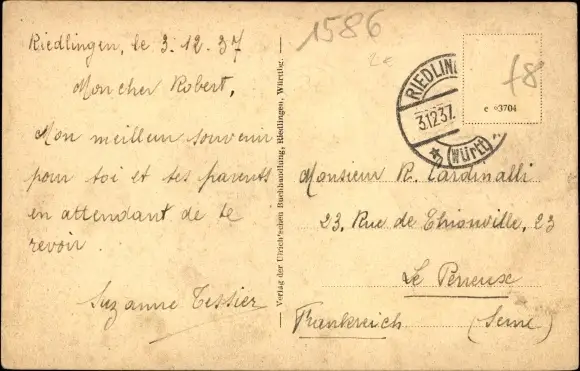 1586
Riedlingen, le 3.12.37
Mon cher Robert,
Mon meilleur souvenir
pour toi et tes parents
en attendant de te
revoir.
Suzanne Tessier
Verlag der Ulrich'schen Buchhandlung, Riedlingen, Württbg.
RIEDLIN
3.12.37.
(Württ)
f8
e 3704
Monsieur R. Cardinalli
23, Rue de Thionville, 23
Le Perreux
Frankreich (Seine)